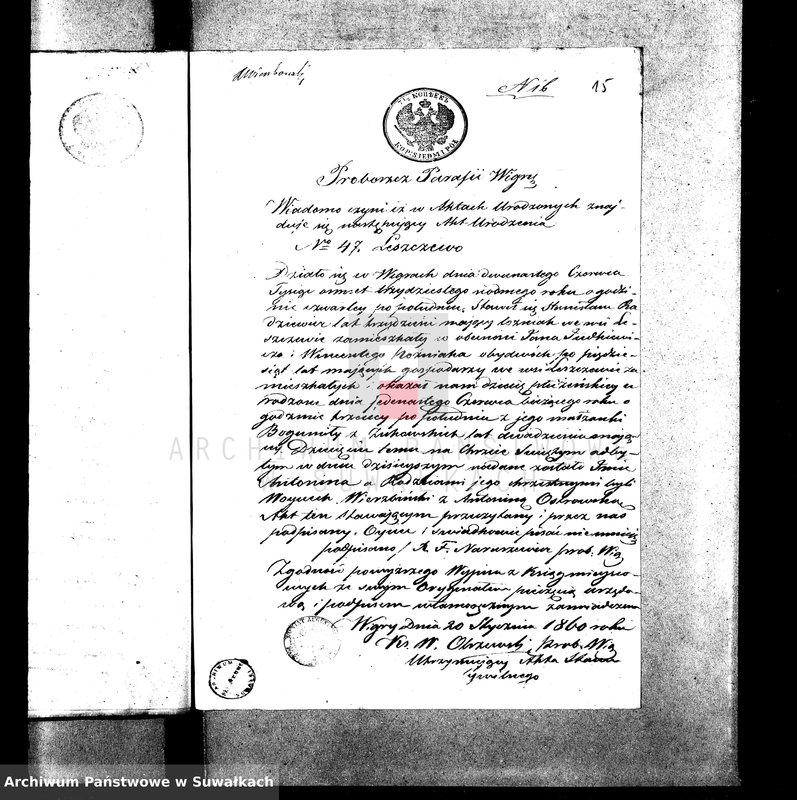 N 16 15
7½ КОПѢЕКЪ
KOP. SIEDM I PÓŁ
Proboszcz Parafii Wigry
Wiadomo czyni iż w Aktach Urodzonych znaj-
duje się następujący Akt Urodzenia
No 47. Leszczewo
Działo się w Wigrach dnia dwunastego Czerwca
Tysiąc ośmset trzydziestego roku o godzi-
nie czwartej po południu. Stawił się Stanisław Ra
dziewicz lat trzydzieści mający we wsi Le-
szczewie zamieszkały w obecności Jana
i Wincentego Woźniaka obydwóch po pięćdzie-
siąt lat mających gospodarzy we wsi Leszczewie za
mieszkałych i okazał nam dziecię płci żeńskiej u
rodzone dnia jedenastego Czerwca bieżącego roku o
godzinie trzeciej po południu z jego małżonki
Bogumiły z Żukowskich lat dwadzieścia mają-
cej. Dziecięciu temu na Chrzcie Świętym odby-
tym w dniu dzisiejszym nadane zostało Imie
Antonina a Rodzicami jego chrzestnymi byli
Woyciech Wierzbiński z Antoniną Ostrowską
Akt ten stawającym przeczytany i przez nas
podpisany. Ojciec i świadkowie pisać nie umieją
podpisano / X. F. Naruszewicz prob. Wig
Zgodność powyższego Wypisu z Księg miejsco-
wych ze swym Oryginałem pieczęcią urzędo-
wą i podpisem własnoręcznym zaświadczam
Wigry Dnia 20 Stycznia 1860 roku
Ks. W. Obrzewski, Prob. Wig
Utrzymujący Akta Stanu
Cywilnego
ARCHIWUM PAŃSTWOWE
W SUWAŁKACH
Archiwum Państwowe w Suwałkach